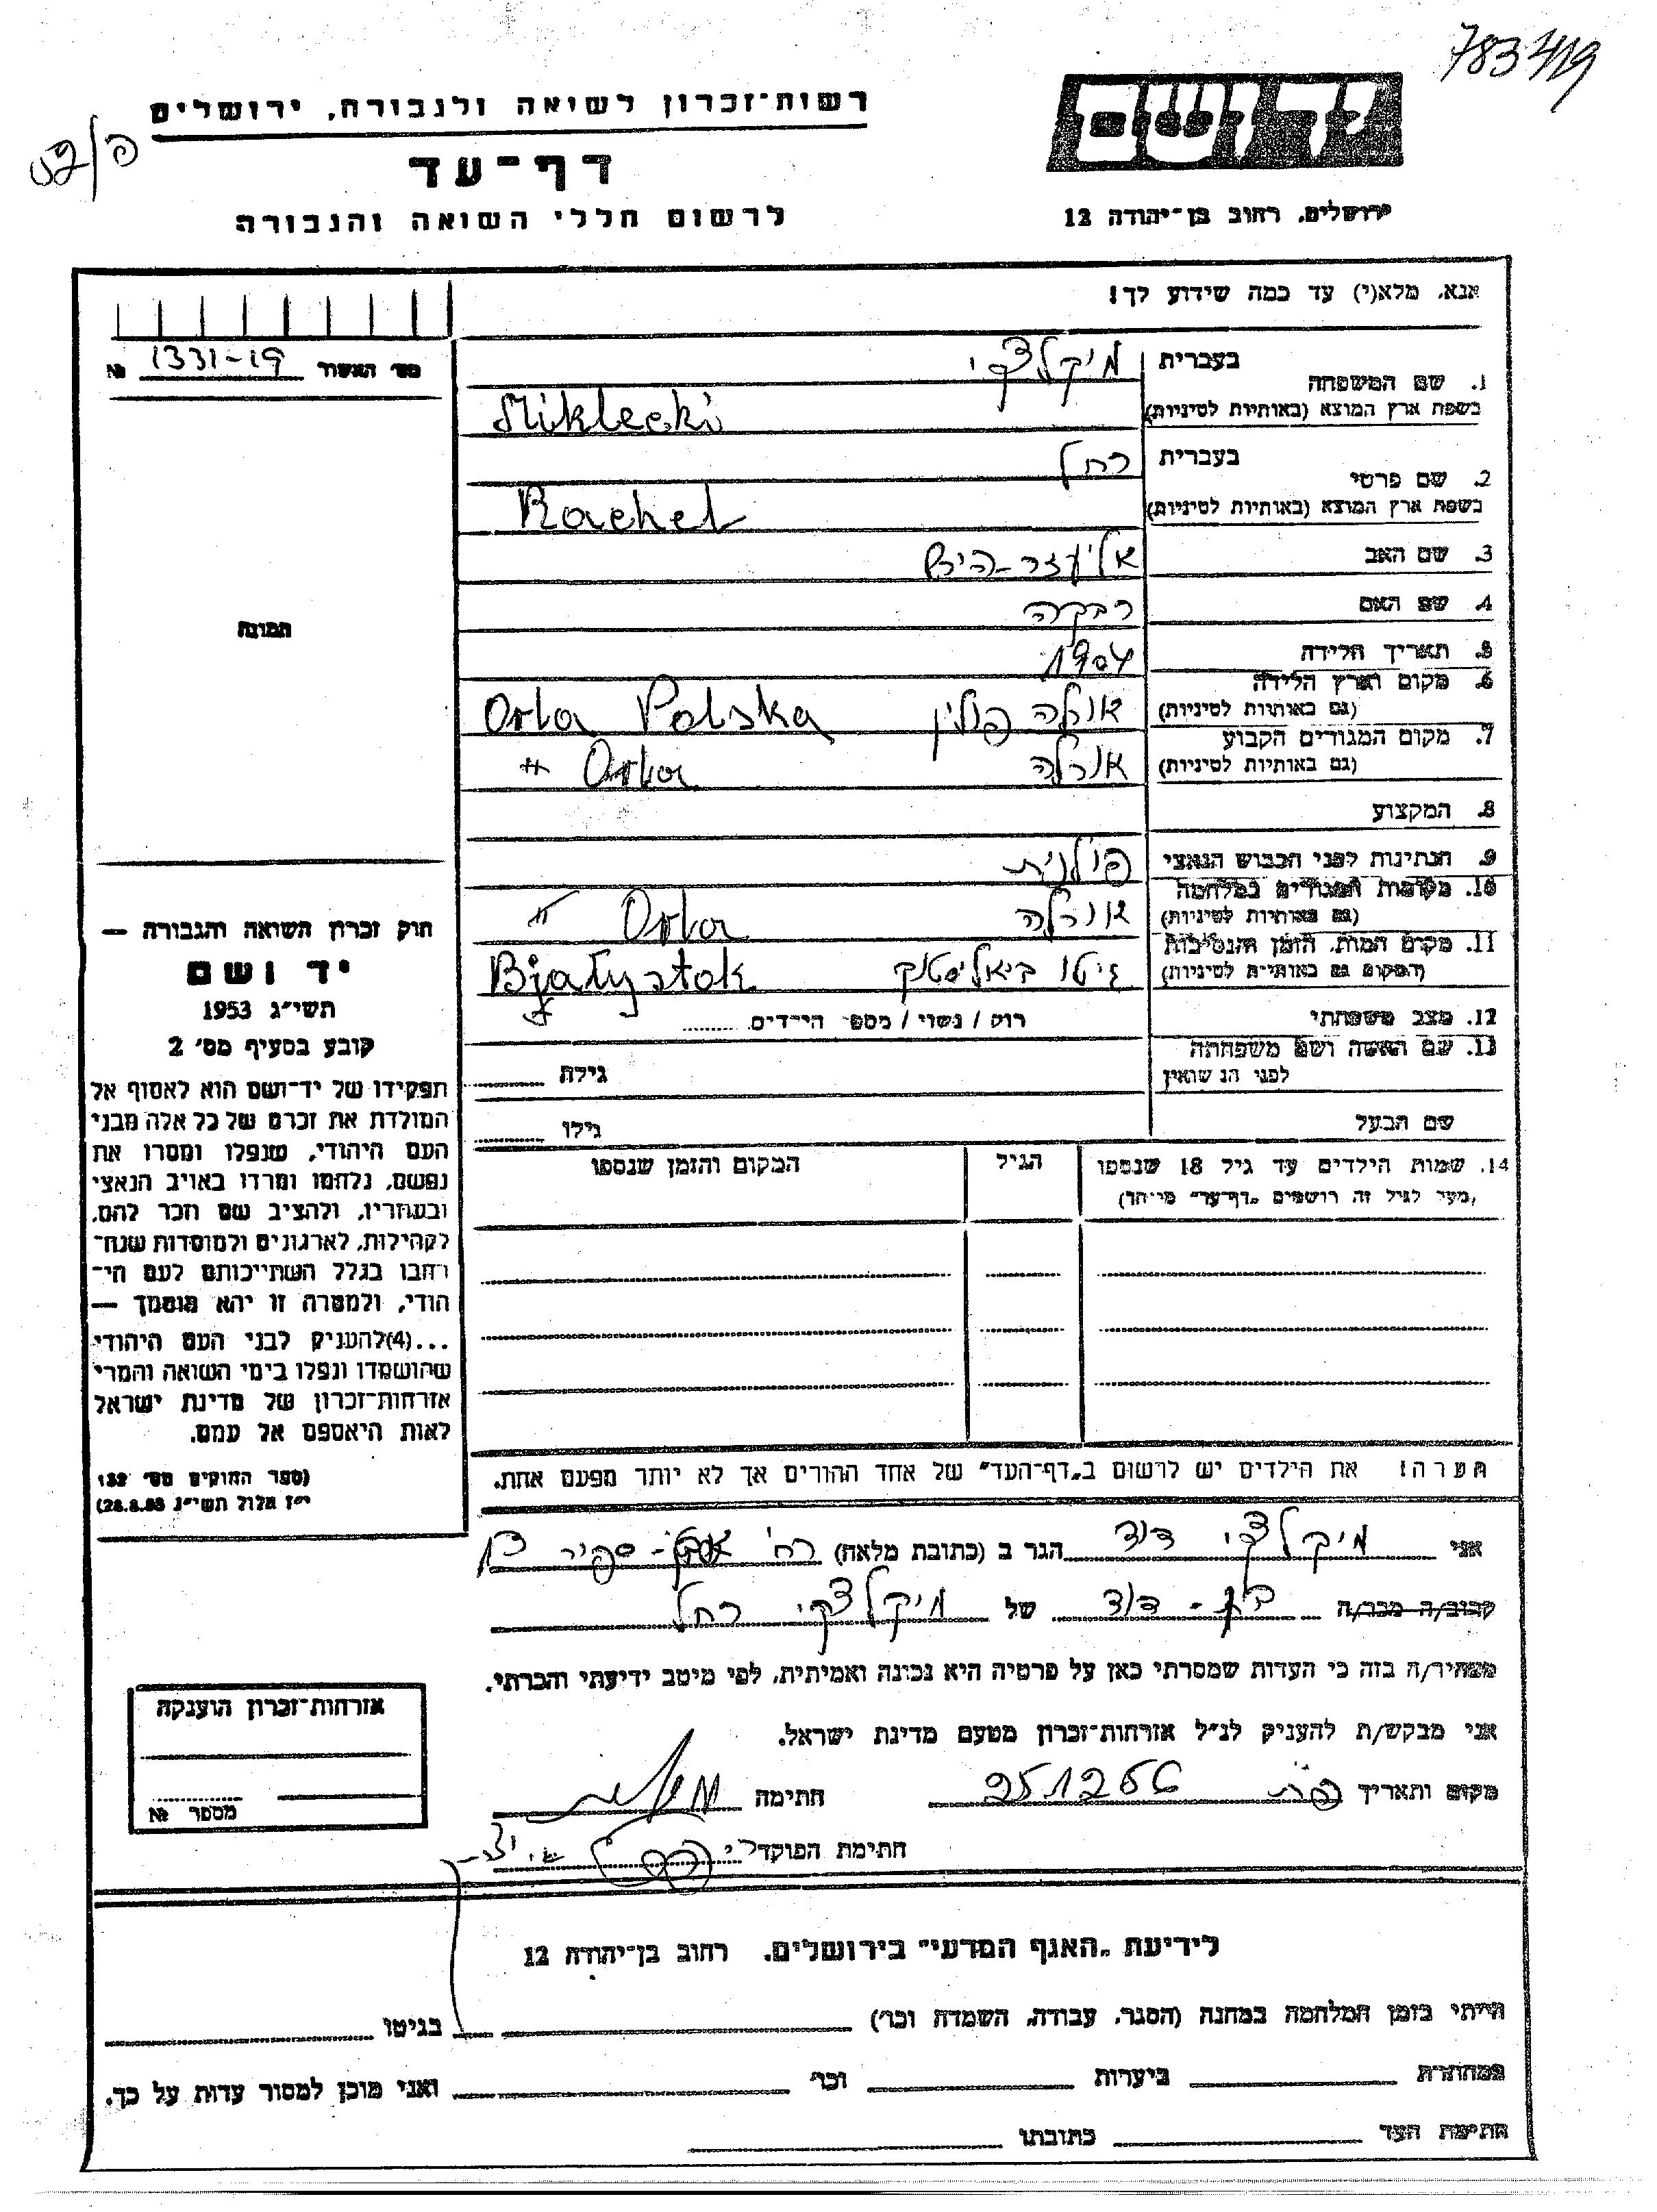 783419
רשות־זכרון לשואה ולגבורה, ירושלים
דף־עד
לרשום חללי השואה והגבורה
יד ושם
ירושלים, רחוב בן־יהודה 12
אנא, מלא(י) עד כמה שידוע לך!
מס׳ האשור 1331-19 №
1. שם המשפחה בעברית מיקלצקי
בשפת ארץ המוצא (באותיות לטיניות) Miklecki
2. שם פרטי בעברית רחל
בשפת ארץ המוצא (באותיות לטיניות) Rachel
3. שם האב אליעזר-הירש
4. שם האם רבקה
תמונה
5. תאריך הלידה 1904
6. מקום וארץ הלידה
(גם באותיות לטיניות) אורלה פולין Orla Polska
7. מקום המגורים הקבוע
(גם באותיות לטיניות) אורלה Orla "
8. המקצוע
9. הנתינות לפני הכבוש הנאצי פולנית
10. מקומות המגורים במלחמה
(גם באותיות לטיניות) אורלה Orla "
11. מקום המות, הזמן והנסיבות
(המקום גם באותיות לטיניות) גיטו ביאליסטוק Bjałystok
12. מצב משפחתי רווק / נשוי / מספר הילדים
13. שם האשה ושם משפחתה
לפני הנשואין גילה
שם הבעל גילו
14. שמות הילדים עד גיל 18 שנספו הגיל המקום והזמן שנספו
(מעל לגיל זה רושמים „דף־עד״ מיוחד)
חוק זכרון השואה והגבורה —
יד ושם
תשי״ג 1953
קובע בסעיף מס׳ 2
תפקידו של יד־ושם הוא לאסוף אל
המולדת את זכרם של כל אלה מבני
העם היהודי, שנפלו ומסרו את
נפשם, נלחמו ומרדו באויב הנאצי
ובעוזריו, ולהציב שם וזכר להם,
לקהילות, לארגונים ולמוסדות שנח־
רחבו בגלל השתייכותם לעם הי־
הודי, ולמטרה זו יהא מוסמך —
...(4)להעניק לבני העם היהודי
שהושמדו ונפלו בימי השואה והמרי
אזרחות־זכרון של מדינת ישראל
לאות היאספם אל עמם.
(ספר החוקים מס׳ 132
י״ז אלול תשי״ג 28.8.53)
הערה! את הילדים יש לרשום ב„דף־העד״ של אחד ההורים אך לא יותר מפעם אחת.
אני מיקלצקי דוד הגר ב (כתובת מלאה) רח׳ ספיר
קרוב/ה מכר/ה דוד של מיקלצקי רחל
מצהיר/ה בזה כי העדות שמסרתי כאן על פרטיה היא נכונה ואמיתית, לפי מיטב ידיעתי והכרתי.
אני מבקש/ת להעניק לנ״ל אזרחות־זכרון מטעם מדינת ישראל.
מקום ותאריך 251256 חתימה
חתימת הפוקד
אזרחות־זכרון הוענקה
מספר №
לידיעת „האגף המדעי״ בירושלים, רחוב בן־יהודה 12
הייתי בזמן המלחמה במחנה (הסגר, עבודה, השמדה וכו׳) בגיטו
במחתרת ביערות וכו׳ ואני מוכן למסור עדות על כך.
חתימת העד כתובתו